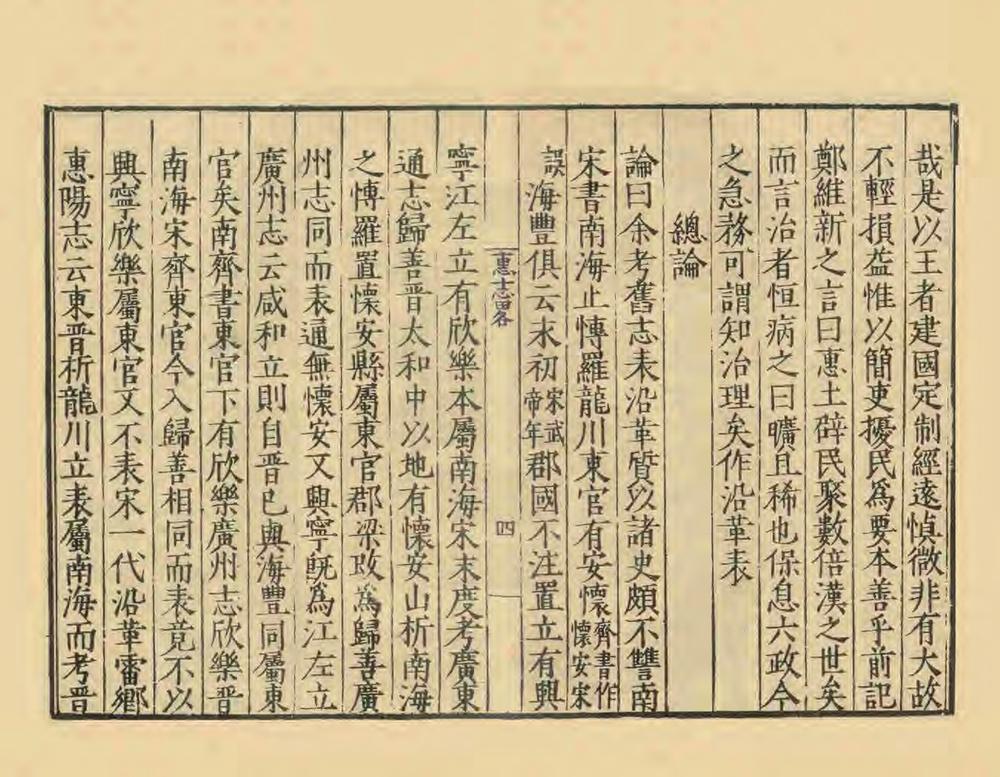 哉是以王者建國定制經遠慎微非有大故
不輕損益惟以簡吏擾民爲要本善乎前記
鄭維新之言曰惠土辟民聚數倍漢之世矣
而言治者恒病之曰曠且稀也保息六政今
之急務可謂知治理矣作沿革表
總論
論曰余考舊志表沿革質以諸史頗不讐南
宋書南海止愽羅龍川東官有安懷齊書作懷安宋
誤海豐俱云末初宋武帝年郡國不注置立有興
惠志畧
四
寧江左立有欣樂本屬南海宋末度考廣東
通志歸善晋太和中以地有懷安山析南海
之愽羅置懷安縣屬東官郡梁改爲歸善廣
州志同而表通無懷安又興寧旣爲江左立
廣州志云咸和立則自晋已與海豐同屬東
官矣南齊書東官下有欣樂廣州志欣樂晋
南海宋齊東官今入歸善相同而表竟不以
興寧欣樂屬東官又不表宋一代沿革審鄉
惠陽志云東晋析龍川立表屬南海而考晋